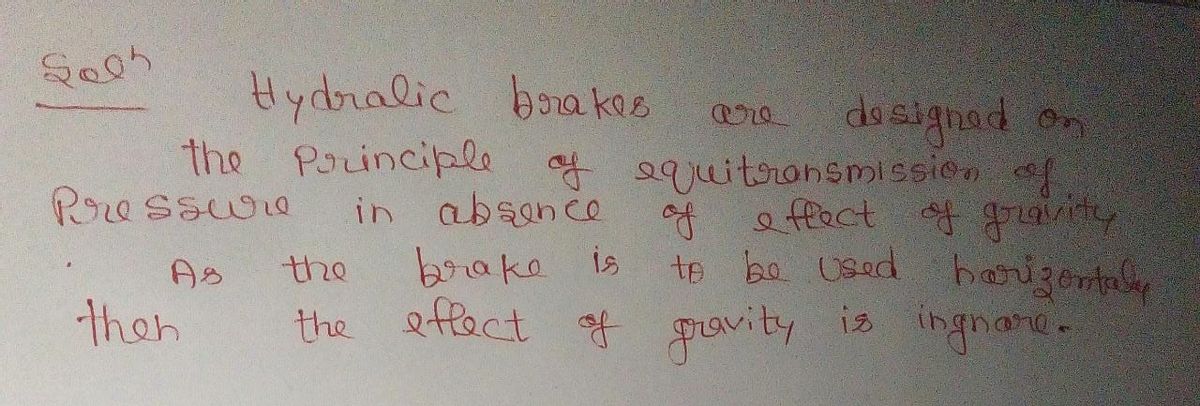 Soln
Hydralic brakes are designed on
the Principle of equitransmission of
Pressure in absence of effect of gravity
As the brake is to be used horizontaly
then the effect of gravity is ingnore.